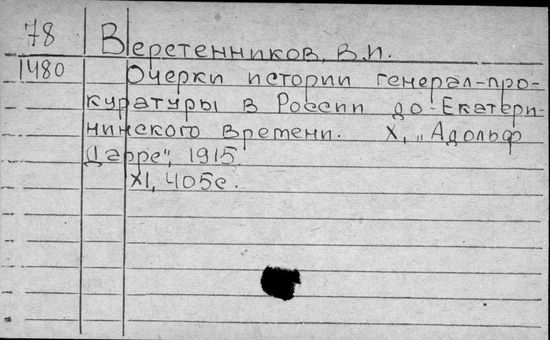 78 Веретенников, В.И.
1480 Очерки истории генерал-про-
куратуры в России до-Екатери-
нинского времени. Х, „Адольф
Дарре“, 1915.
XI, 405с.